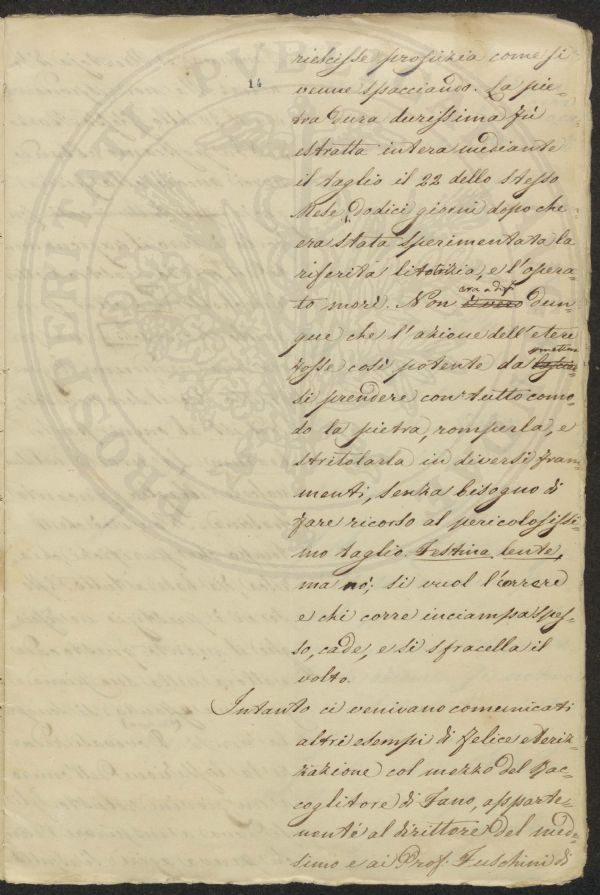 14
riescisse profizia come si
venne spacciando. La pie-
tra dura durissima fù
estratta intera mediante
il taglio il 22 dello stesso
Mese, dodici giorni dopo che
era stata sperimentata la
riferita litotrizia, e l'opera-
to morì. Non è vero dun-
que che l'azione dell'etere
fosse così potente da
si prendere con tutto como-
do la pietra, romperla, e
stritolarla in diversi fram-
menti, senza bisogno di
fare ricorso al pericolosissi-
mo taglio. Festina lente,
ma nò; si vuol l'correre
e chi corre inciampa spes-
so, cade, e si sfracella il
volto.
Intanto ci venivano comunicati
altri esempi di felice eteriz-
zazione col mezzo del Rac-
coglitore di Fano, apparte-
nenti al direttore del mede-
simo e ai Prof. Fuschini di
PROSPERITATI PUBL